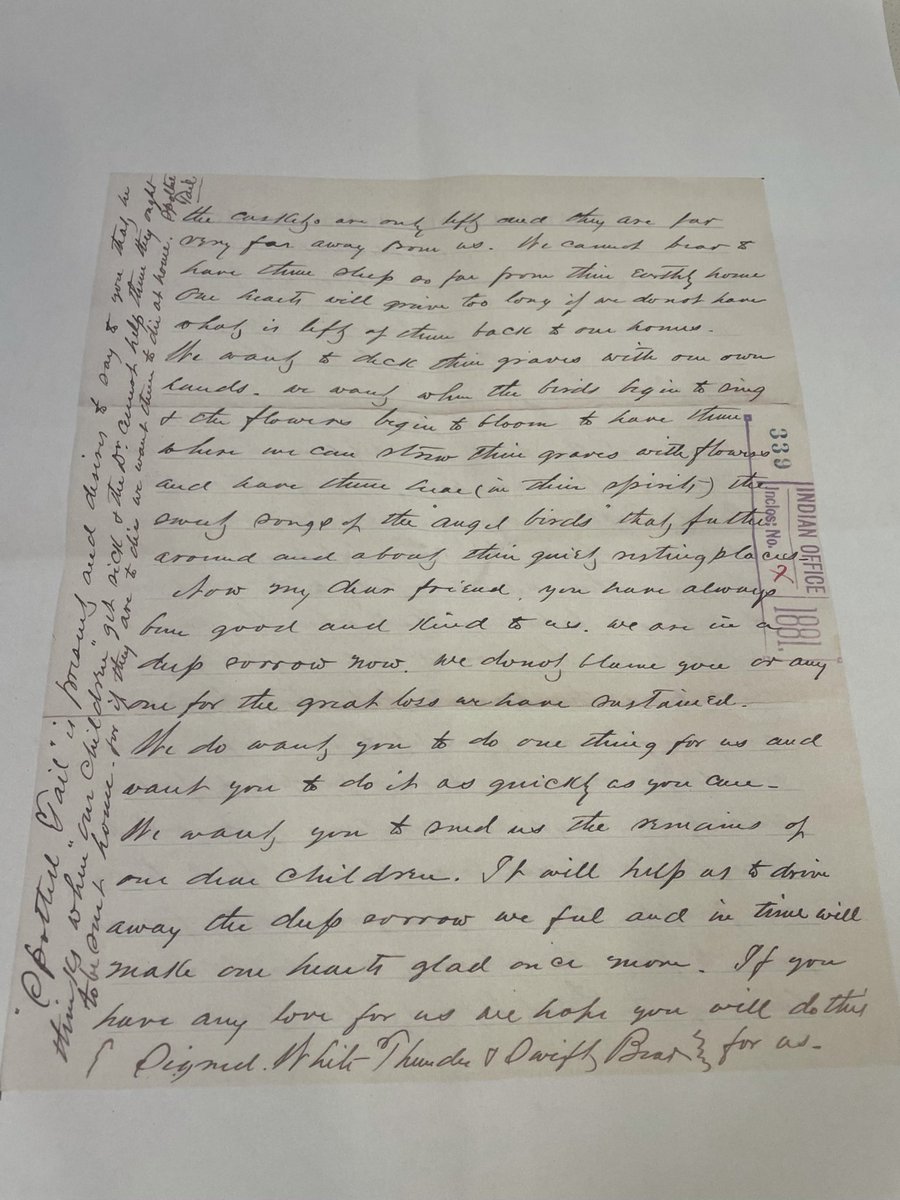 the caskets are only left and they are far
very far away from us. We cannot bear to
have them sleep so far from their Earthly home
Our hearts will grieve too long if we do not have
what is left of them back to our homes.
We want to deck their graves with our own
hands. we want when the birds begin to sing
& the flowers begin to bloom to have them
where we can strew their graves with flowers
and have them hear (in their spirits) the
sweet songs of the "angel birds" that
around and about their quiet resting places.
Now my dear friend, you have always
been good and kind to us. we are in a
deep sorrow now. we do not blame you or any
one for the great loss we have sustained.
We do want you to do one thing for us and
want you to do it as quickly as you can-
We want you to send us the remains of
our dear children. It will help us to drive
away the deep sorrow we feel and in time will
make our hearts glad once more. If you
have any love for us we hope you will do this
for us-
Signed. White Thunder & Swift Bear
"Spotted Tail" is present and desires to say to you that he
thinks when "our children" get sick & the Dr. cannot help them they ought
to be sent home- for if they are to die we want them to die at home. Spotted
Tail
339
INDIAN OFFICE
Inclos: No. 7
1881.